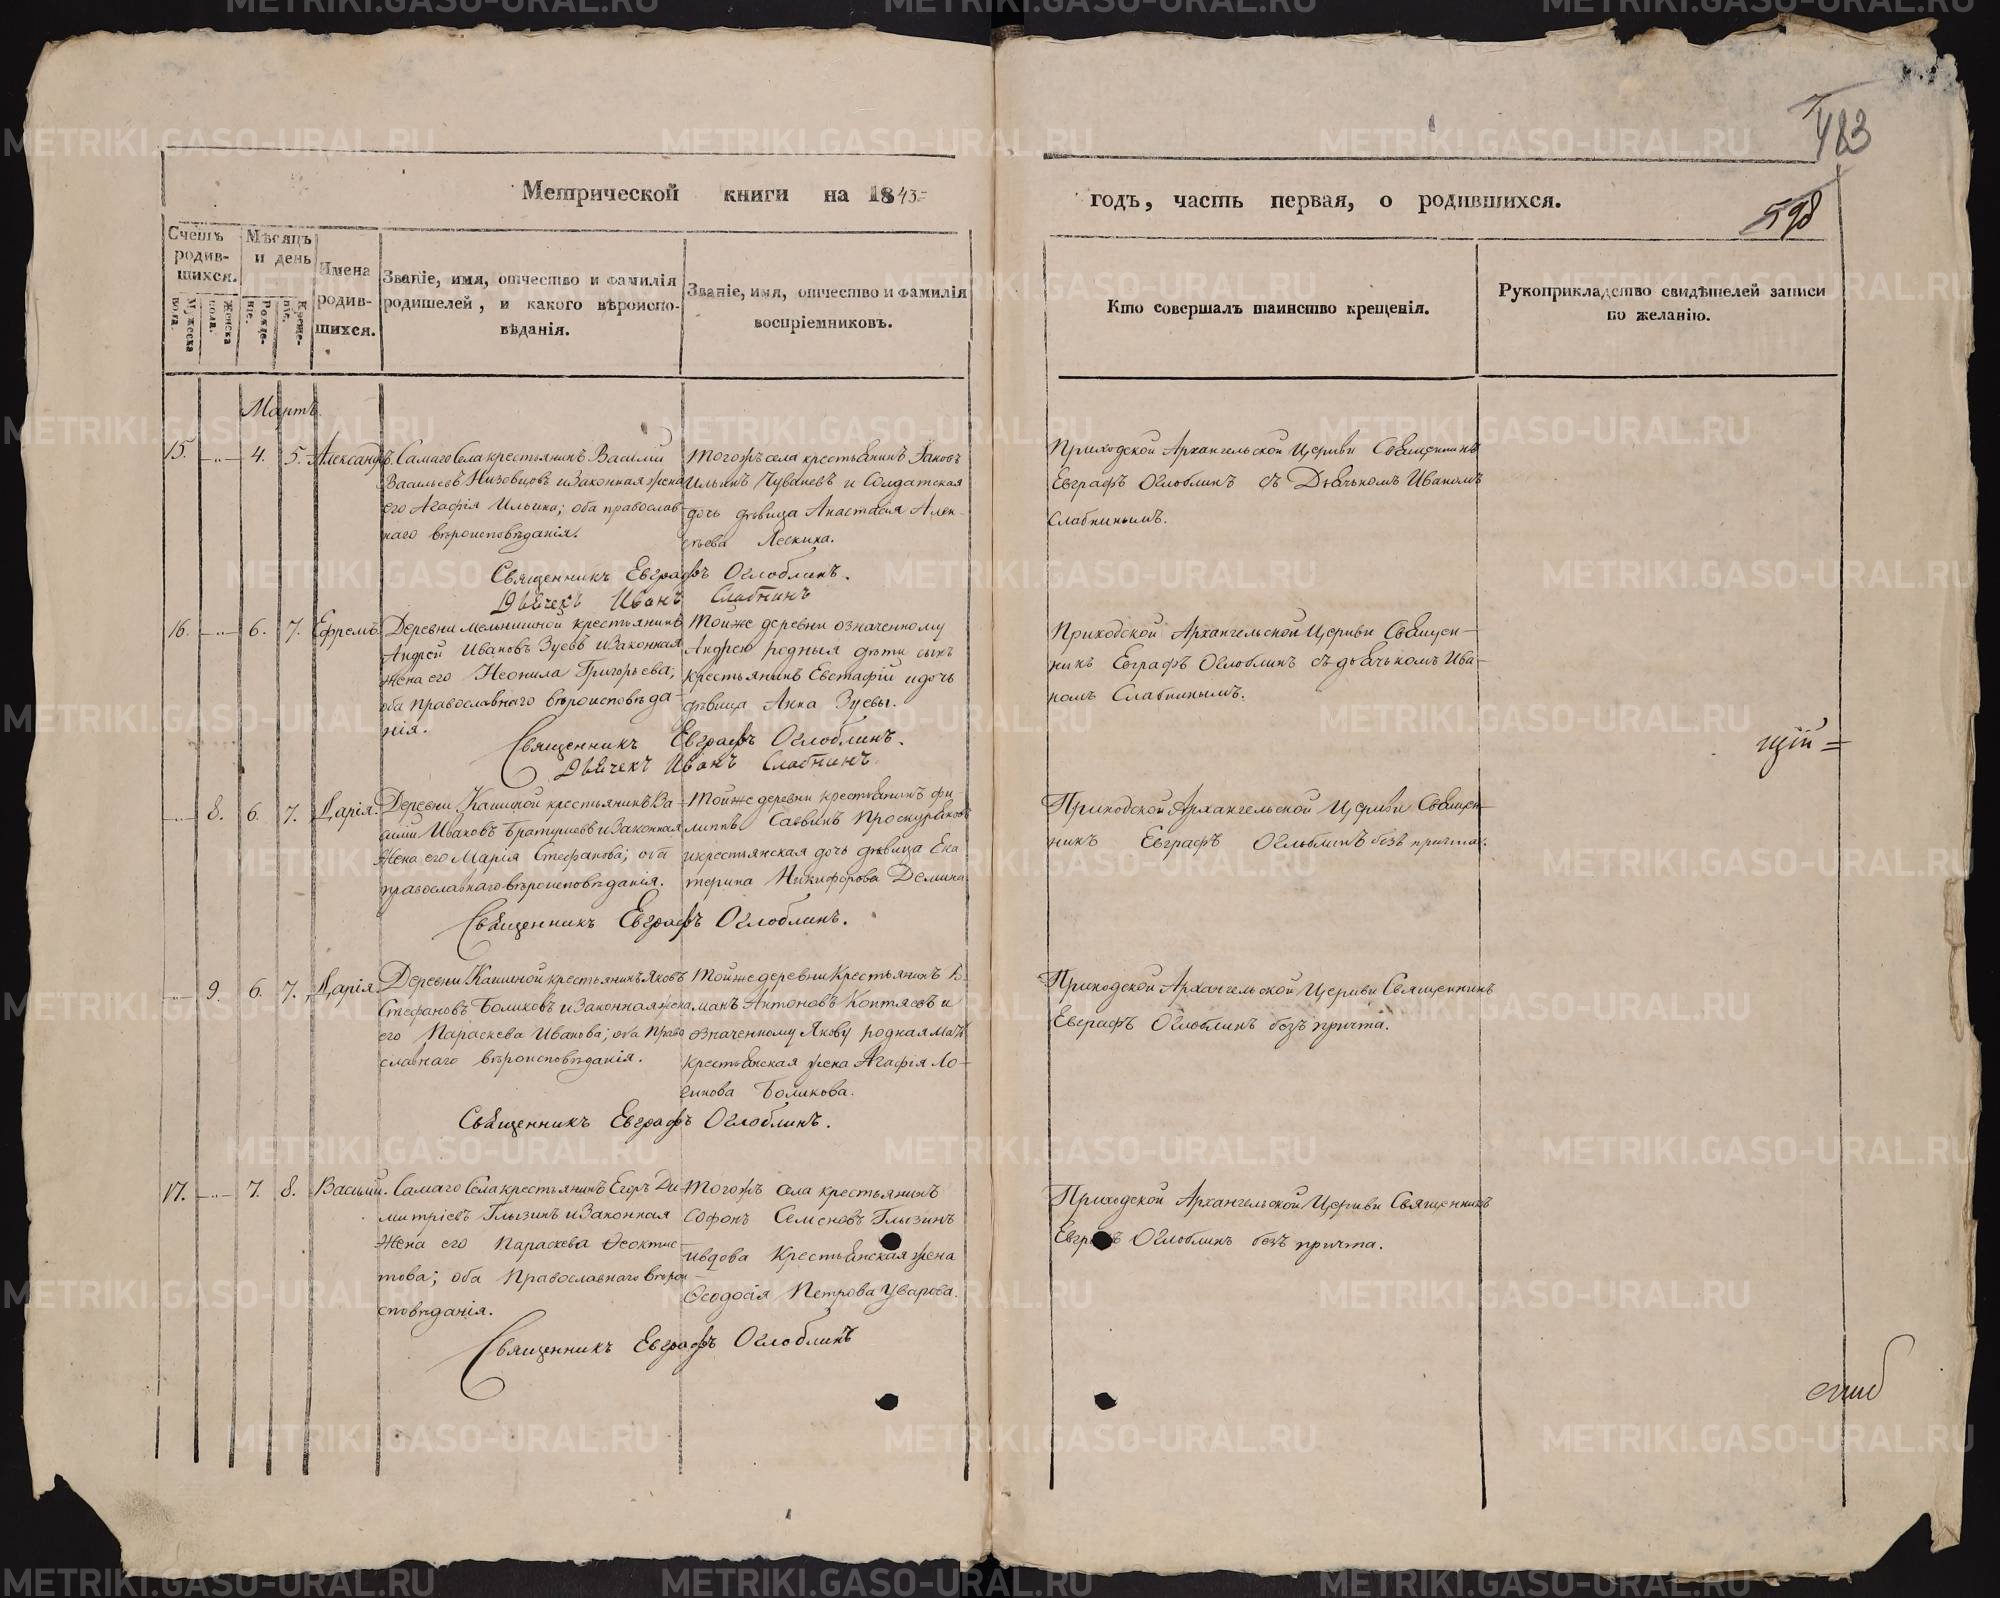 483
598
Метрической книги на 1843 =
годъ, часть первая, о родившихся.
Счетъ родив-
шихся.
Мужеска пола.
Женска пола.
Мѣсяцъ и день
Рожде-
ніе.
Креще-
ніе.
Имена
родив-
шихся.
Званіе, имя, отчество и фамилія
родителей, и какого вѣроиспо-
вѣданія.
Званіе, имя, отчество и фамилія
воспріемниковъ.
Кто совершалъ таинство крещенія.
Рукоприкладство свидѣтелей записи
по желанію.
Мартъ
15. 4. 5. Александръ.
Самаго Села крестьянинъ Василій
Васильевъ Низовцовъ и законная жена
его Агафія Ильина; оба православ-
наго вѣроисповѣданія.
Тогожъ села крестьянинъ Іаковъ
Ильинъ Чуваневъ и Солдатская
дочь дѣвица Анастасія Алек-
сѣева
Приходской Архангельской Церкви Священникъ
Евграфъ Оглоблинъ съ Дьячькомъ Иваномъ
Слабнинымъ.
Священникъ Евграфъ Оглоблинъ.
Дьячекъ Иванъ Слабнинъ
16. 6. 7. Ефремъ.
Деревни крестьянинъ
Андрей Ивановъ Зуевъ и законная
жена его Неонила Григорьева;
оба православнаго вѣроисповѣда-
нія.
Тойже деревни означенному
Андрею родныя дѣти сынъ
крестьянинъ Евстафій и дочь
дѣвица Анна Зуевы.
Приходской Архангельской Церкви Священ-
никъ Евграфъ Оглоблинъ съ дьячькомъ Ива-
номъ Слабнинымъ.
Священникъ Евграфъ Оглоблинъ.
Дьячекъ Иванъ Слабнинъ.
щій =
8. 6. 7. Дарія.
Деревни Кашиной крестьянинъ Ва-
силій Ивановъ и законная
жена его Марія Стефанова; оба
православнаго вѣроисповѣданія.
Тойже деревни крестьянинъ Фи-
липпъ Саввинъ Проскуряковъ
и крестьянская дочь дѣвица Ека
терина Никифорова Демина
Приходской Архангельской Церкви Священ-
никъ Евграфъ Оглоблинъ безъ причта.
Священникъ Евграфъ Оглоблинъ.
9. 6. 7. Дарія.
Деревни Кашиной крестьянинъ Яковъ
Стефановъ Боликовъ и законная жена
его Параскева Иванова; оба право
славнаго вѣроисповѣданія.
Тойже деревни Крестьянинъ
Антоновъ Коптяевъ и
означенному Якову родная мать
крестьянская жена Агафія Ло-
гинова Боликова.
Приходской Архангельской Церкви Священникъ
Евграфъ Оглоблинъ безъ причта.
Священникъ Евграфъ Оглоблинъ.
17. 7. 8. Василій.
Самаго Села крестьянинъ Егоръ Ди-
митріевъ Глызинъ и законная
жена его Параскева Ѳеоктис-
това; оба Православнаго вѣрои-
сповѣданія.
Тогожъ села крестьянинъ
Софонъ Семеновъ Глызинъ
и вдова Крестьянская жена
Ѳеодосія Петрова Уварова.
Приходской Архангельской Церкви Священникъ
Евграфъ Оглоблинъ безъ причта.
Священникъ Евграфъ Оглоблинъ